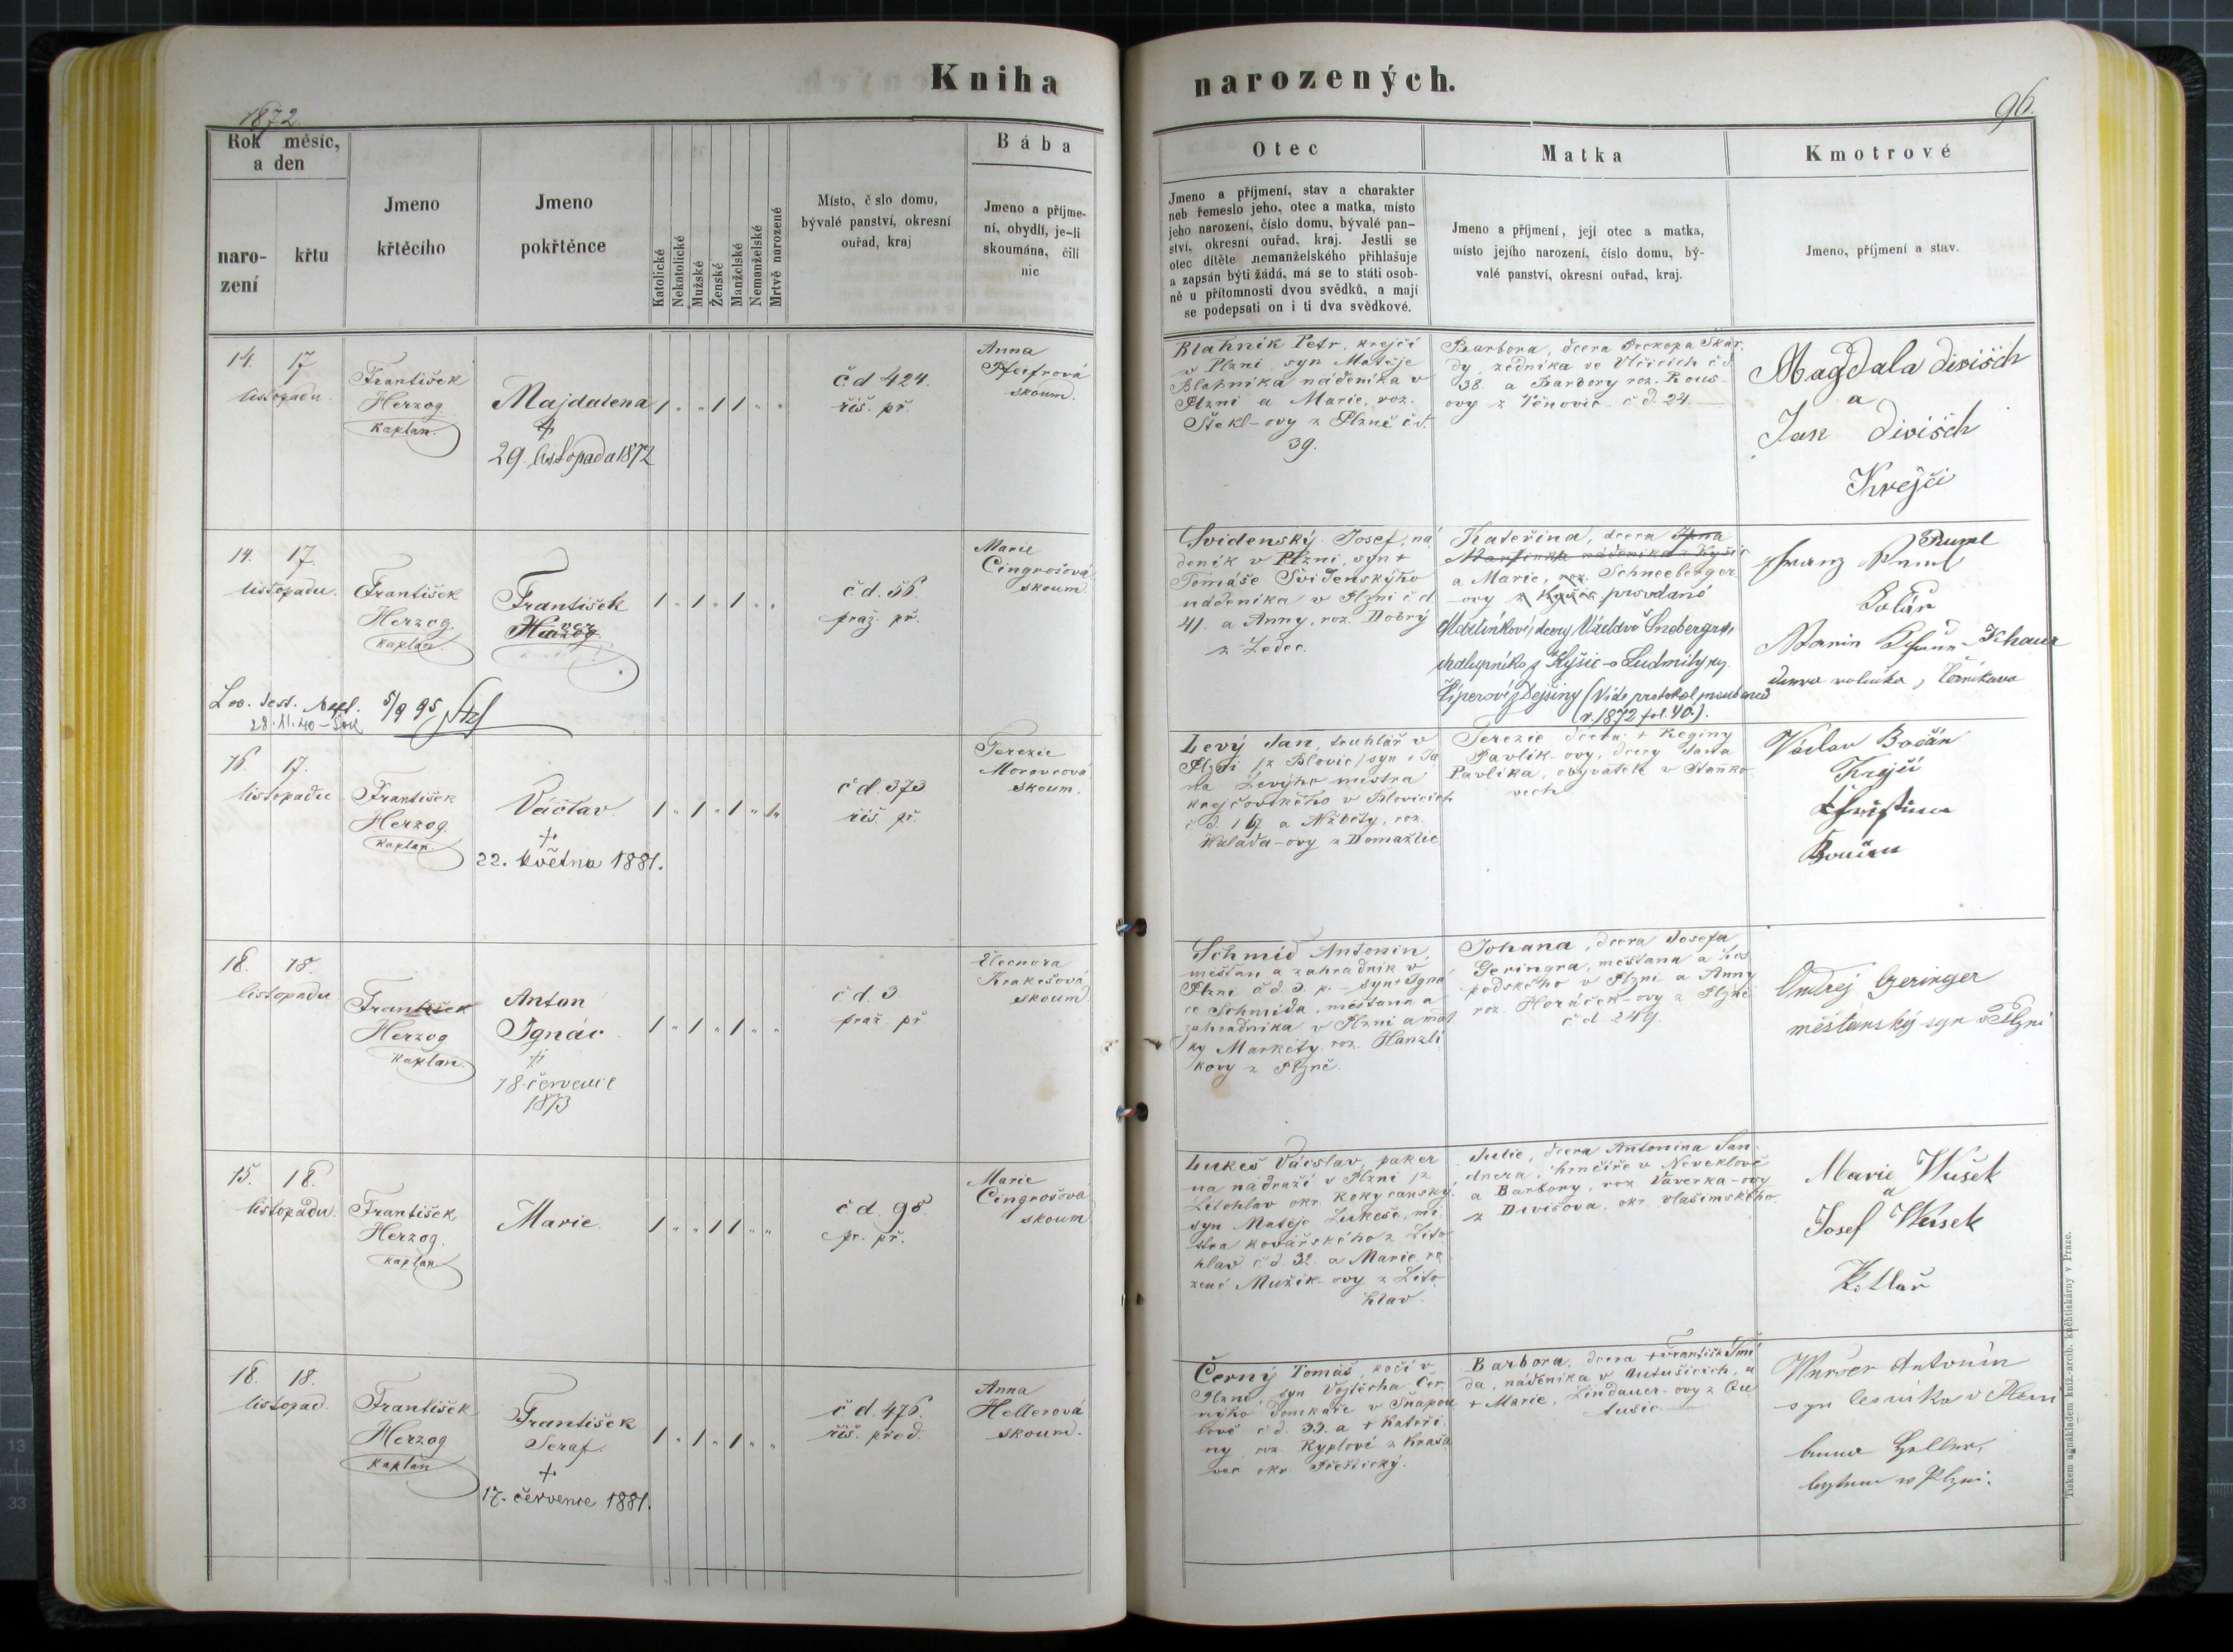 Kniha
narozených.
1872.
96.
Rok měsíc,
a den
naro-
zení
křtu
Jmeno
křtěcího
Jmeno
pokřtěnce
Katolické
Nekatolické
Mužské
Ženské
Manželské
Nemanželské
Mrtvě narozené
Místo, č slo domu,
bývalé panství, okresní
ouřad, kraj
Bába
Jmeno a příjme-
ní, obydlí, je-li
skoumána, čili
nic
Otec
Jmeno a příjmení, stav a charakter
neb řemeslo jeho, otec a matka, místo
jeho narození, číslo domu, bývalé pan-
ství, okresní ouřad, kraj. Jestli se
otec dítěte nemanželského přihlašuje
a zapsán býti žádá, má se to státi osob-
ně u přítomnosti dvou svědků, a mají
se podepsati on i ti dva svědkové.
Matka
Jmeno a příjmení, její otec a matka,
místo jejího narození, číslo domu, bý-
valé panství, okresní ouřad, kraj.
Kmotrové
Jmeno, příjmení a stav.
14. 17
listopadu
František
Herzog
kaplan.
Majdalena
+
29. listopada 1872
č.d 424.
říš. př.
Anna
Pfeifrová
skoum.
Blahnik Petr, krejčí
v Plzni syn Matěje
Blahnika nádeníka v
Plzni a Marie, roz.
Štekl-ovy z Plzně č.d.
39.
Barbora, dcera Prokopa Škar
dy, zedníka ve Vlčicích č d
38. a Barbory roz. Rous-
ovy z Těnovic. č d. 24.
Magdala Divišch
a
Jan Divišch
Krejči
14. 17.
listopadu.
František
Herzog.
kaplan.
František
č d. 56.
praž. př.
Marie
Cingrošová
skoum.
5/9 95
28.11.40
Svidenský Josef, ná
deník v Plzni, syn +
Tomáše Svidenskýho
nádeníka v Plzni č d
41. a Anny, roz. Dobrý
z Ledec.
Kateřina, dcera
a Marie, roz. Schneeberger
ovy z Kyšic provdané
Martínkové, dcery Václava Šnebergra,
chalupníka z Kyšic a Ludmily roz.
Šiperové z Dejšiny (Vide protokol
(r. 1872 fol. 40.).
Ruml
Franz Ruml
16. 17.
listopadu
František
Herzog.
kaplan
Václav.
+
22. května 1881.
č d. 373
říš. př.
Terezie
Moravcová
skoum.
Levý Jan, truhlář v
Plzni /z Blovic/ syn + Ja
na Levýho mistra
krejčovského v Blovicích
č d. 167 a Alžběty, roz.
Halada-ovy z Domažlic
Terezie dcera + Reginy
Pavlik-ovy, dcery Jana
Pavlíka, obyvatele v Staňko
vech
Václav Bočan
Krejčí
18. 18.
listopadu
František
Herzog
kaplan.
Anton
Ignác
+
18. července
1873
č d. 3
praž. př.
Eleonora
skoum
Schmid Antonin,
měšťan a zahradník v
Plzni č d 3. p. - syn + Igná
ce Schmida, měšťana a
zahradníka v Plzni a mat
ky Markéty roz. Hanzlí
kovy z Plzně.
Johana, dcera Josefa
Geringra, měšťana a hos
podského v Plzni a Anny
roz. Horáček-ovy z Plzně
č d. 249.
Ondřej Geringer
měšťanský syn v Plzni
15. 18.
listopadu.
František
Herzog.
kaplan
Marie.
č d. 98.
pr. př.
Marie
Cingrošová
skoum
Lukeš Václav, paker
na nádraží v Plzni /z
Litohlav okr. Rokycanský,
syn Matěje Lukeše, mi
stra kovářského z Lito
hlav č d. 32. a Marie ro
zené Mužík-ovy z Lito
hlav.
Julie, dcera Antonina San
dnera, hrnčíře v Neveklově
a Barbory, roz. Vaverka-ovy
z Divišova, okr. Vlašimského.
Marie Wušek
a
Josef Wušek
Kotlař
18. 18.
listopad.
František
Herzog
kaplan
František
Seraf.
+
17. července 1881.
č. d. 476.
říš. před.
Anna
Hellerová
skoum.
Černý Tomáš, kočí v
Plzni, syn Vojtěcha Čer
nýho domkáře v Snopou
sově č d. 33. a + Kateři
ny roz. Ryplové z Kraša
vec okr. Přeštický.
Barbora, dcera + Františk Šmí
da, nádeníka v Untušicích, a
+ Marie, Lindauer-ovy z
tušic.
Antonín
syn lesníka v Plzni
v Plzni.
Tiskem a nákladem kníž.-arcib. kněhtiskárny v Praze.